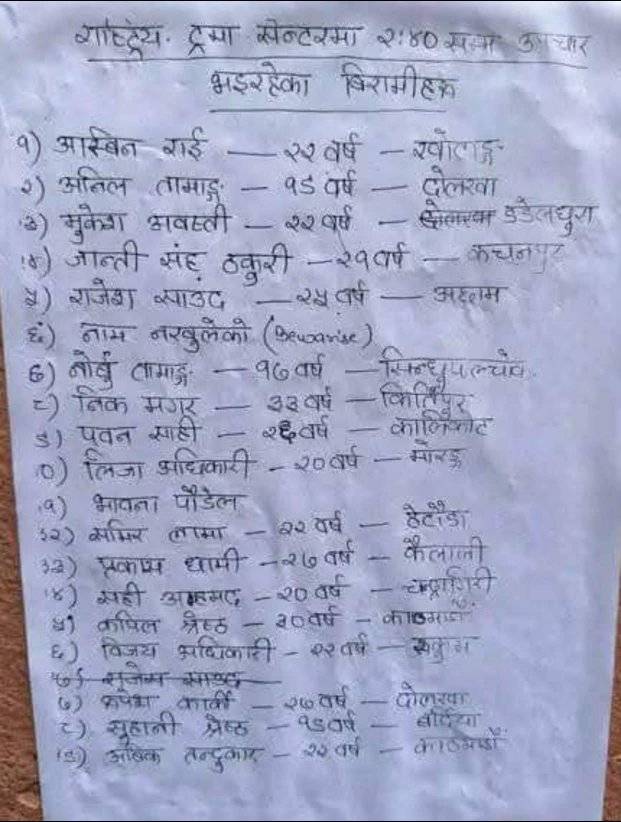 राष्ट्रिय ट्रमा सेन्टरमा २:४० सम्म उपचार
भइरहेका बिरामीहरू
१) आस्बिन राई — २२ वर्ष — खोटाङ्ग
२) अनिल तामाङ्ग — १९ वर्ष — दोलखा
३) मुकेश अवस्ती — २२ वर्ष — डडेलधुरा
४) जान्ती संह ठकुरी — २१ वर्ष — कंचनपुर
५) राजेश साउद — २५ वर्ष — अछाम
६) नाम नखुलेको (Bewarise)
७) नोर्बु तामाङ्ग — १७ वर्ष — सिन्धुपाल्चोक
८) निक मगर — ३३ वर्ष — किर्तिपुर
९) पवन साही — २६ वर्ष — कालिकोट
१०) लिजा अधिकारी — २० वर्ष — मोरङ्ग
११) भावना पौडेल
१२) समिर लामा — २२ वर्ष — हेटौंडा
१३) प्रकाश धामी — २७ वर्ष — कैलाली
१४) सही अहमद — २० वर्ष — चन्द्रागिरी
५) कपिल श्रेष्ठ — ३० वर्ष — काठमाडौं
६) विजय अधिकारी — २२ वर्ष —
७) कार्की — २७ वर्ष — दोलखा
८) सुहानी श्रेष्ठ — १९ वर्ष — बर्दिया
१९) अबिक तन्दुकार — २२ वर्ष — काठमाडौं